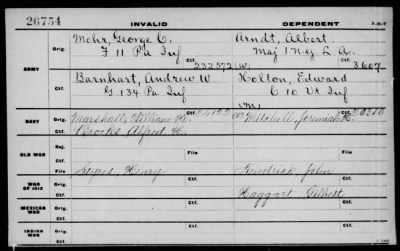 26754
INVALID DEPENDENT
ARMY
Orig. Mohr, George C. Arndt, Albert
F 11 Pa Inf Maj 1 N.Y. L. A.
Ctf. 232572 (W) 3.607
Orig. Barnhart, Andrew W. Holton, Edward
G 134 Pa Inf C 10 Vt Inf
Ctf.
NAVY
Orig. Marshall, William H. Mitchell, Jeremiah
Ctf. Brooks Alfred H.
OLD WAR
Rej.
Ctf. File File
WAR OF 1812
Orig. Henry Kendrick, John
Ctf. Haggart, Gilbert
MEXICAN WAR
Orig.
Ctf.
INDIAN WAR
Orig.
Ctf.